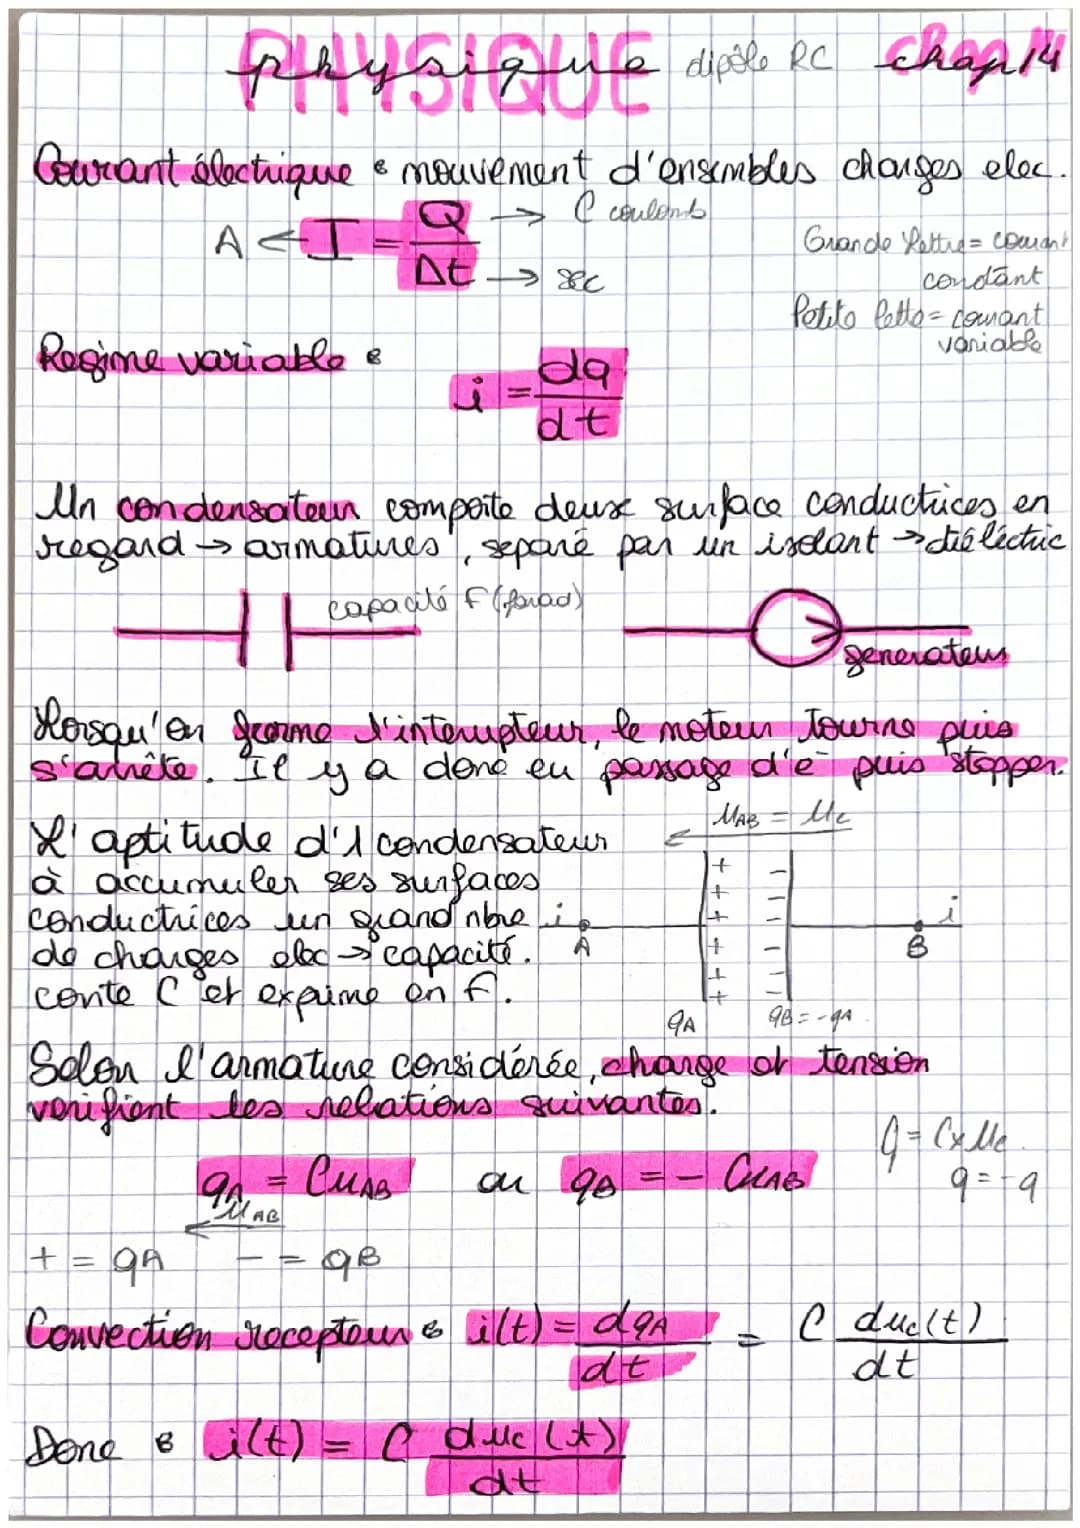 PHYSIQUE
physique dipôle RC chap 14
Courant électrique : mouvement d'ensembles charges elec.
A ← I = Q/Δt → C coulomb
→ sec
Grande lettre = courant
constant
Petite lettre = courant
variable
Regime variable :
i = dq/dt
Un condensateur comporte deux surface conductrices en
regard → armatures, separé par un isolant → diéléctric
capacité F (farad)
generateur
Lorsqu'on ferme l'interupteur, le moteur tourne puis
s'arrête. Il y a donc eu passage d'e- puis stopper.
L'aptitude d'1 condensateur
à accumuler ses surfaces
conductrices un grand nbre
de charges elec → capacité.
conte C et exprime en F.
uAB = uc
+ + + + + +
- - - - - -
i A
B i
qA qB = -qA.
Selon l'armature considérée, charge et tension
verifient les relations suivantes.
qA = CuAB ou qB = - CuAB
q = C x uc.
q = -q
uAB
+ = qA - = qB
Convection recepteur : i(t) = dqA/dt = C duc(t)/dt
Donc : i(t) = C duc(t)/dt